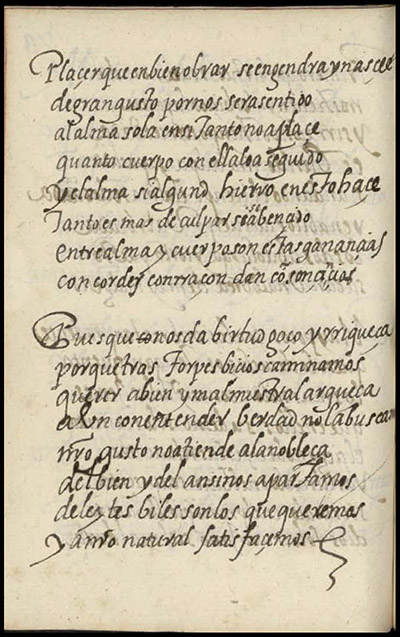 Plaçer que en bien obrar se engendra y nasçe
de gran gusto por nos sera sentido
al alma sola en si tanto no aplaçe
quanto cuerpo con ella lo a seguido
y el alma si algund hierro en esto haçe
tanto es mas de culpar si a bençido
entre alma y cuerpo son estas ganançias
con cordes con raçon dan cõsonãçias
Pues que nos da birtud goço y rriqueça
por que tras torpes biçios caminamos
querer a bien y mal muestra largueça
en conentender berdad no la buscam
nr̃o gusto no atiende a la nobleça
del bien y del ansi nos apartamos
deleytes biles son los que queremos
y a nr̃o natural satisfaçemos